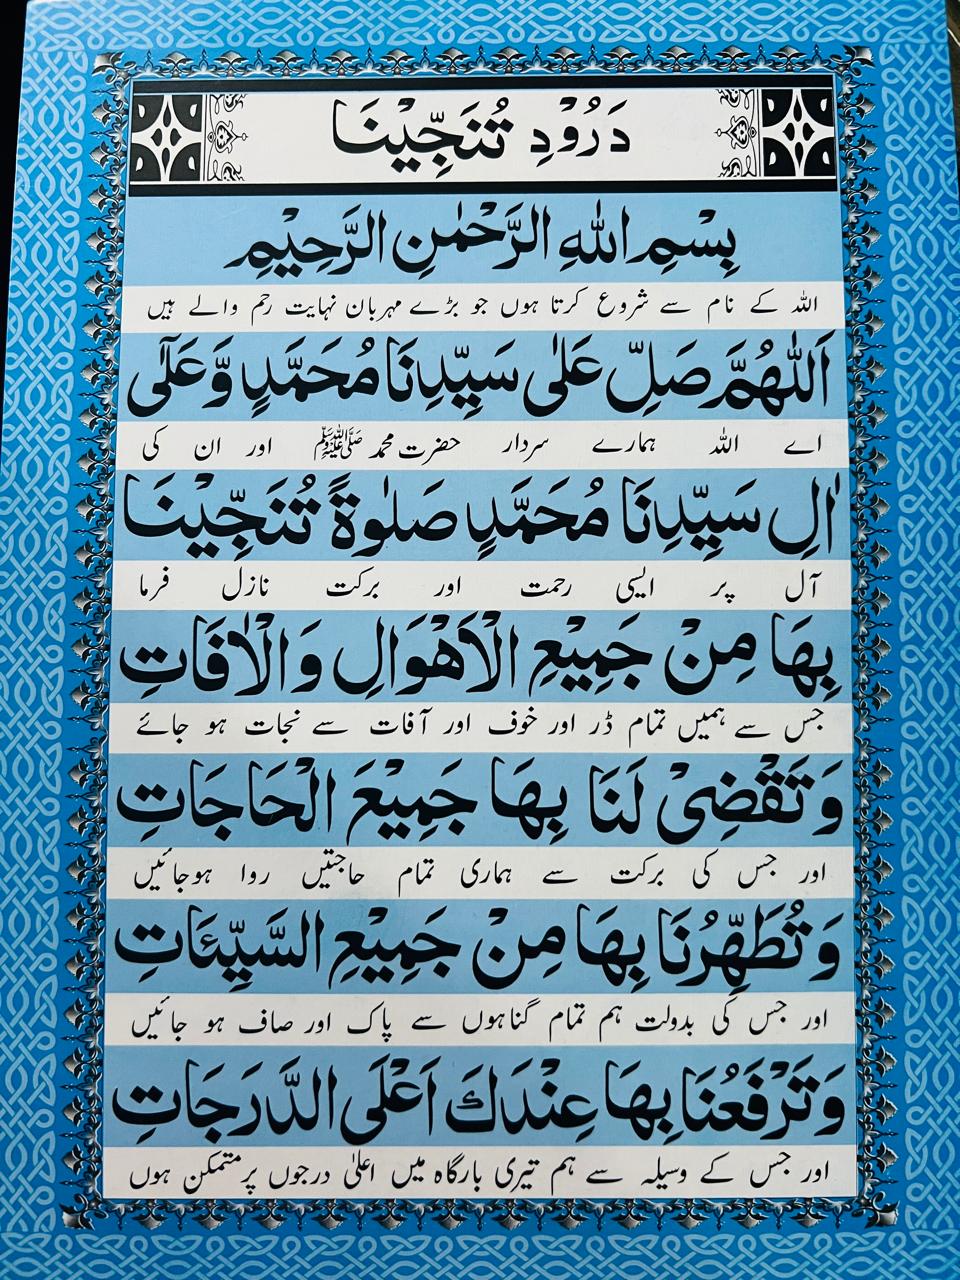 دَرُوْدِ تُنَجِّيْنَا
بِسْمِ اللهِ الرَّحْمٰنِ الرَّحِيْمِ
اللہ کے نام سے شروع کرتا ہوں جو بڑے مہربان نہایت رحم والے ہیں
اَللّٰهُمَّ صَلِّ عَلٰى سَيِّدِنَا مُحَمَّدٍ وَّعَلٰٓى
اے اللہ ہمارے سردار حضرت محمد ﷺ اور ان کی
اٰلِ سَيِّدِنَا مُحَمَّدٍ صَلٰوةً تُنَجِّيْنَا
آل پر ایسی رحمت اور برکت نازل فرما
بِهَا مِنْ جَمِيْعِ الْاَهْوَالِ وَالْاٰفَاتِ
جس سے ہمیں تمام ڈر اور خوف اور آفات سے نجات ہو جائے
وَتَقْضِىْ لَنَا بِهَا جَمِيْعَ الْحَاجَاتِ
اور جس کی برکت سے ہماری تمام حاجتیں روا ہوجائیں
وَتُطَهِّرُنَا بِهَا مِنْ جَمِيْعِ السَّيِّئَاتِ
اور جس کی بدولت ہم تمام گناہوں سے پاک اور صاف ہو جائیں
وَتَرْفَعُنَا بِهَا عِنْدَكَ اَعْلَى الدَّرَجَاتِ
اور جس کے وسیلہ سے ہم تیری بارگاہ میں اعلیٰ درجوں پر متمکن ہوں